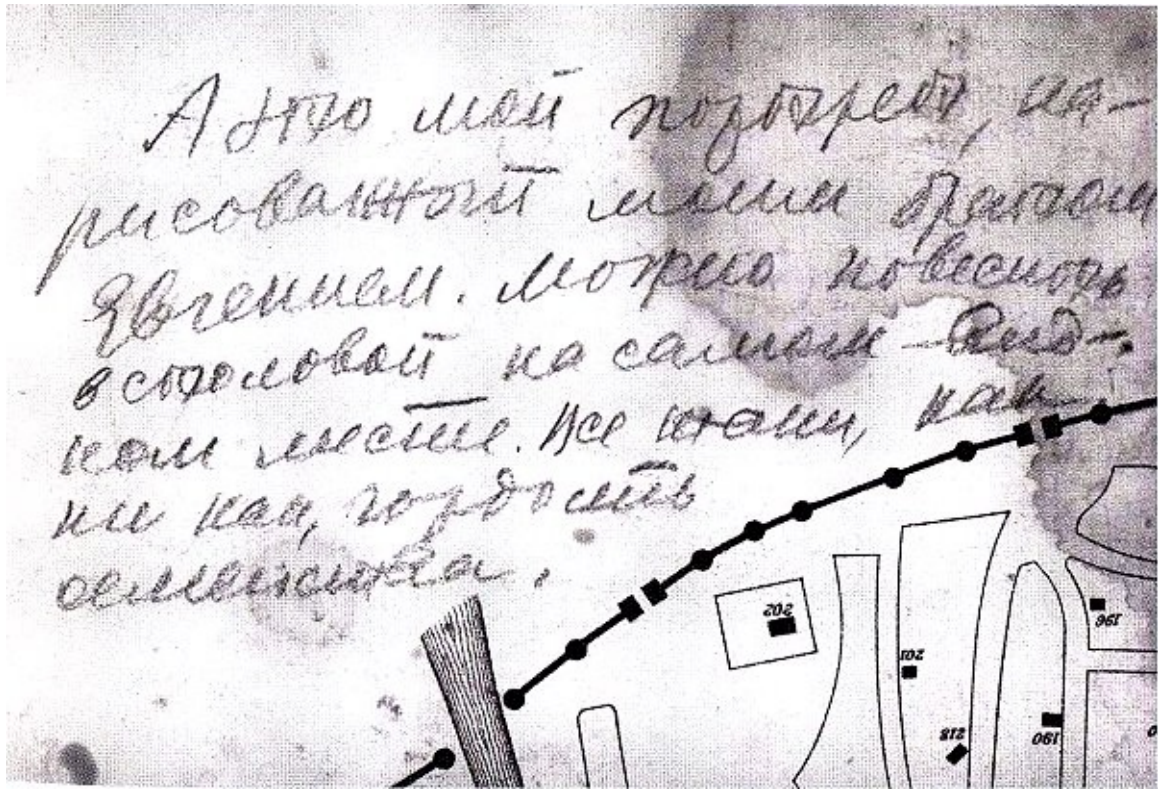 А это мой портрет, на-
рисованный моим братом
Евгением. Можно повесить
в столовой на самом – вид-
ном месте. Все ж таки, как
ни как, гордость
семейства.
202
201
196
218
190